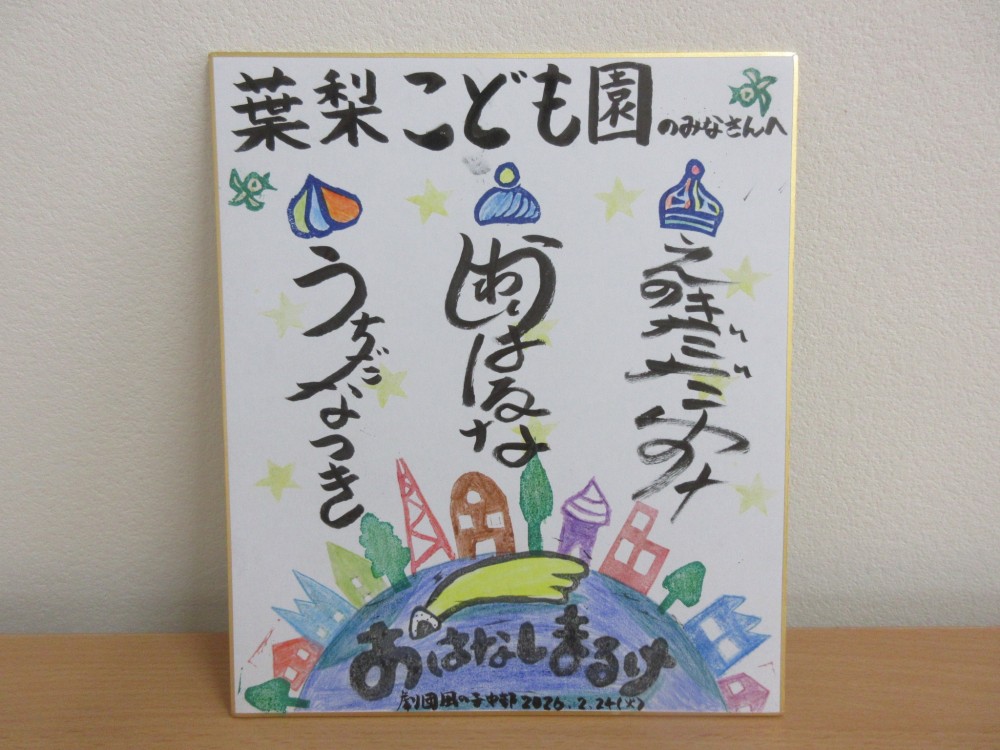 葉梨こども園のみなさんへ
うちだなつき
はるな
おはなしまるけ
劇団風の子中部 2026.2.24(火)